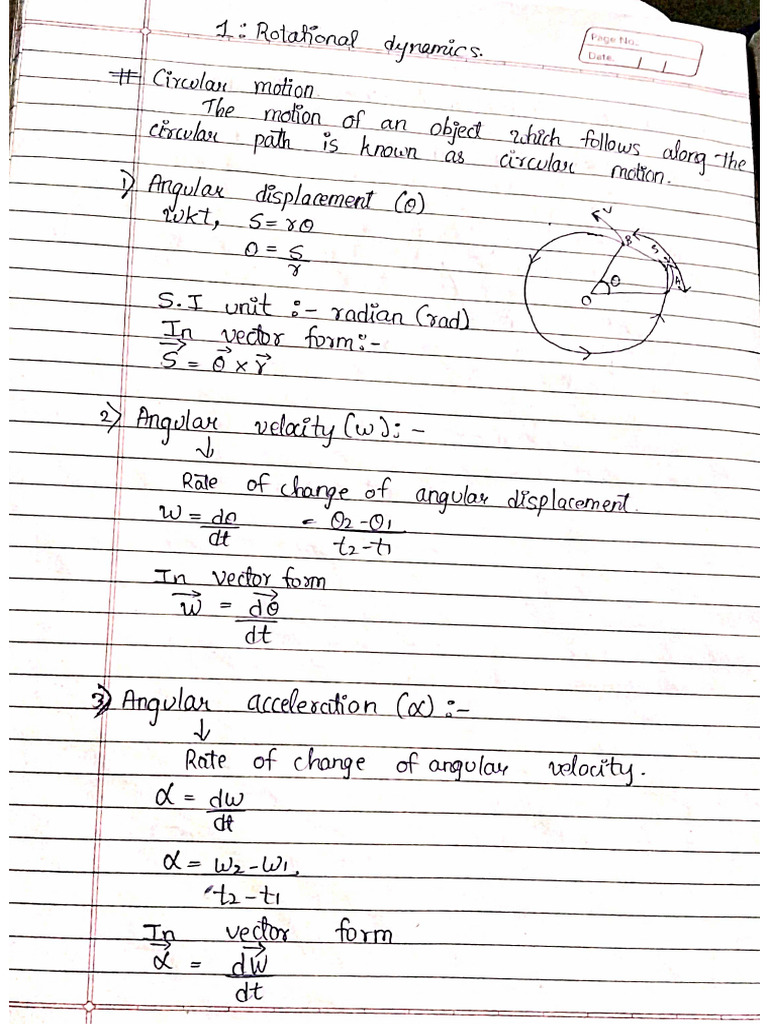 1: Rotational dynamics.
Page No.
Date.
# Circular motion
The motion of an object which follows along the
circular path is known as circular motion.
1) Angular displacement (θ)
wkt, S = rθ
θ = S/r
S.I unit :- radian (rad)
In vector form:-
S⃗ = θ⃗ × r⃗
V
B
S
A
θ
O
2) Angular velocity (w): -
↓
Rate of change of angular displacement.
w = dθ/dt = θ2-θ1/t2-t1
In vector form
w⃗ = dθ⃗/dt
3) Angular acceleration (α) :-
↓
Rate of change of angular velocity.
α = dw/dt
α = w2-w1/t2-t1
In vector form
α⃗ = dw⃗/dt